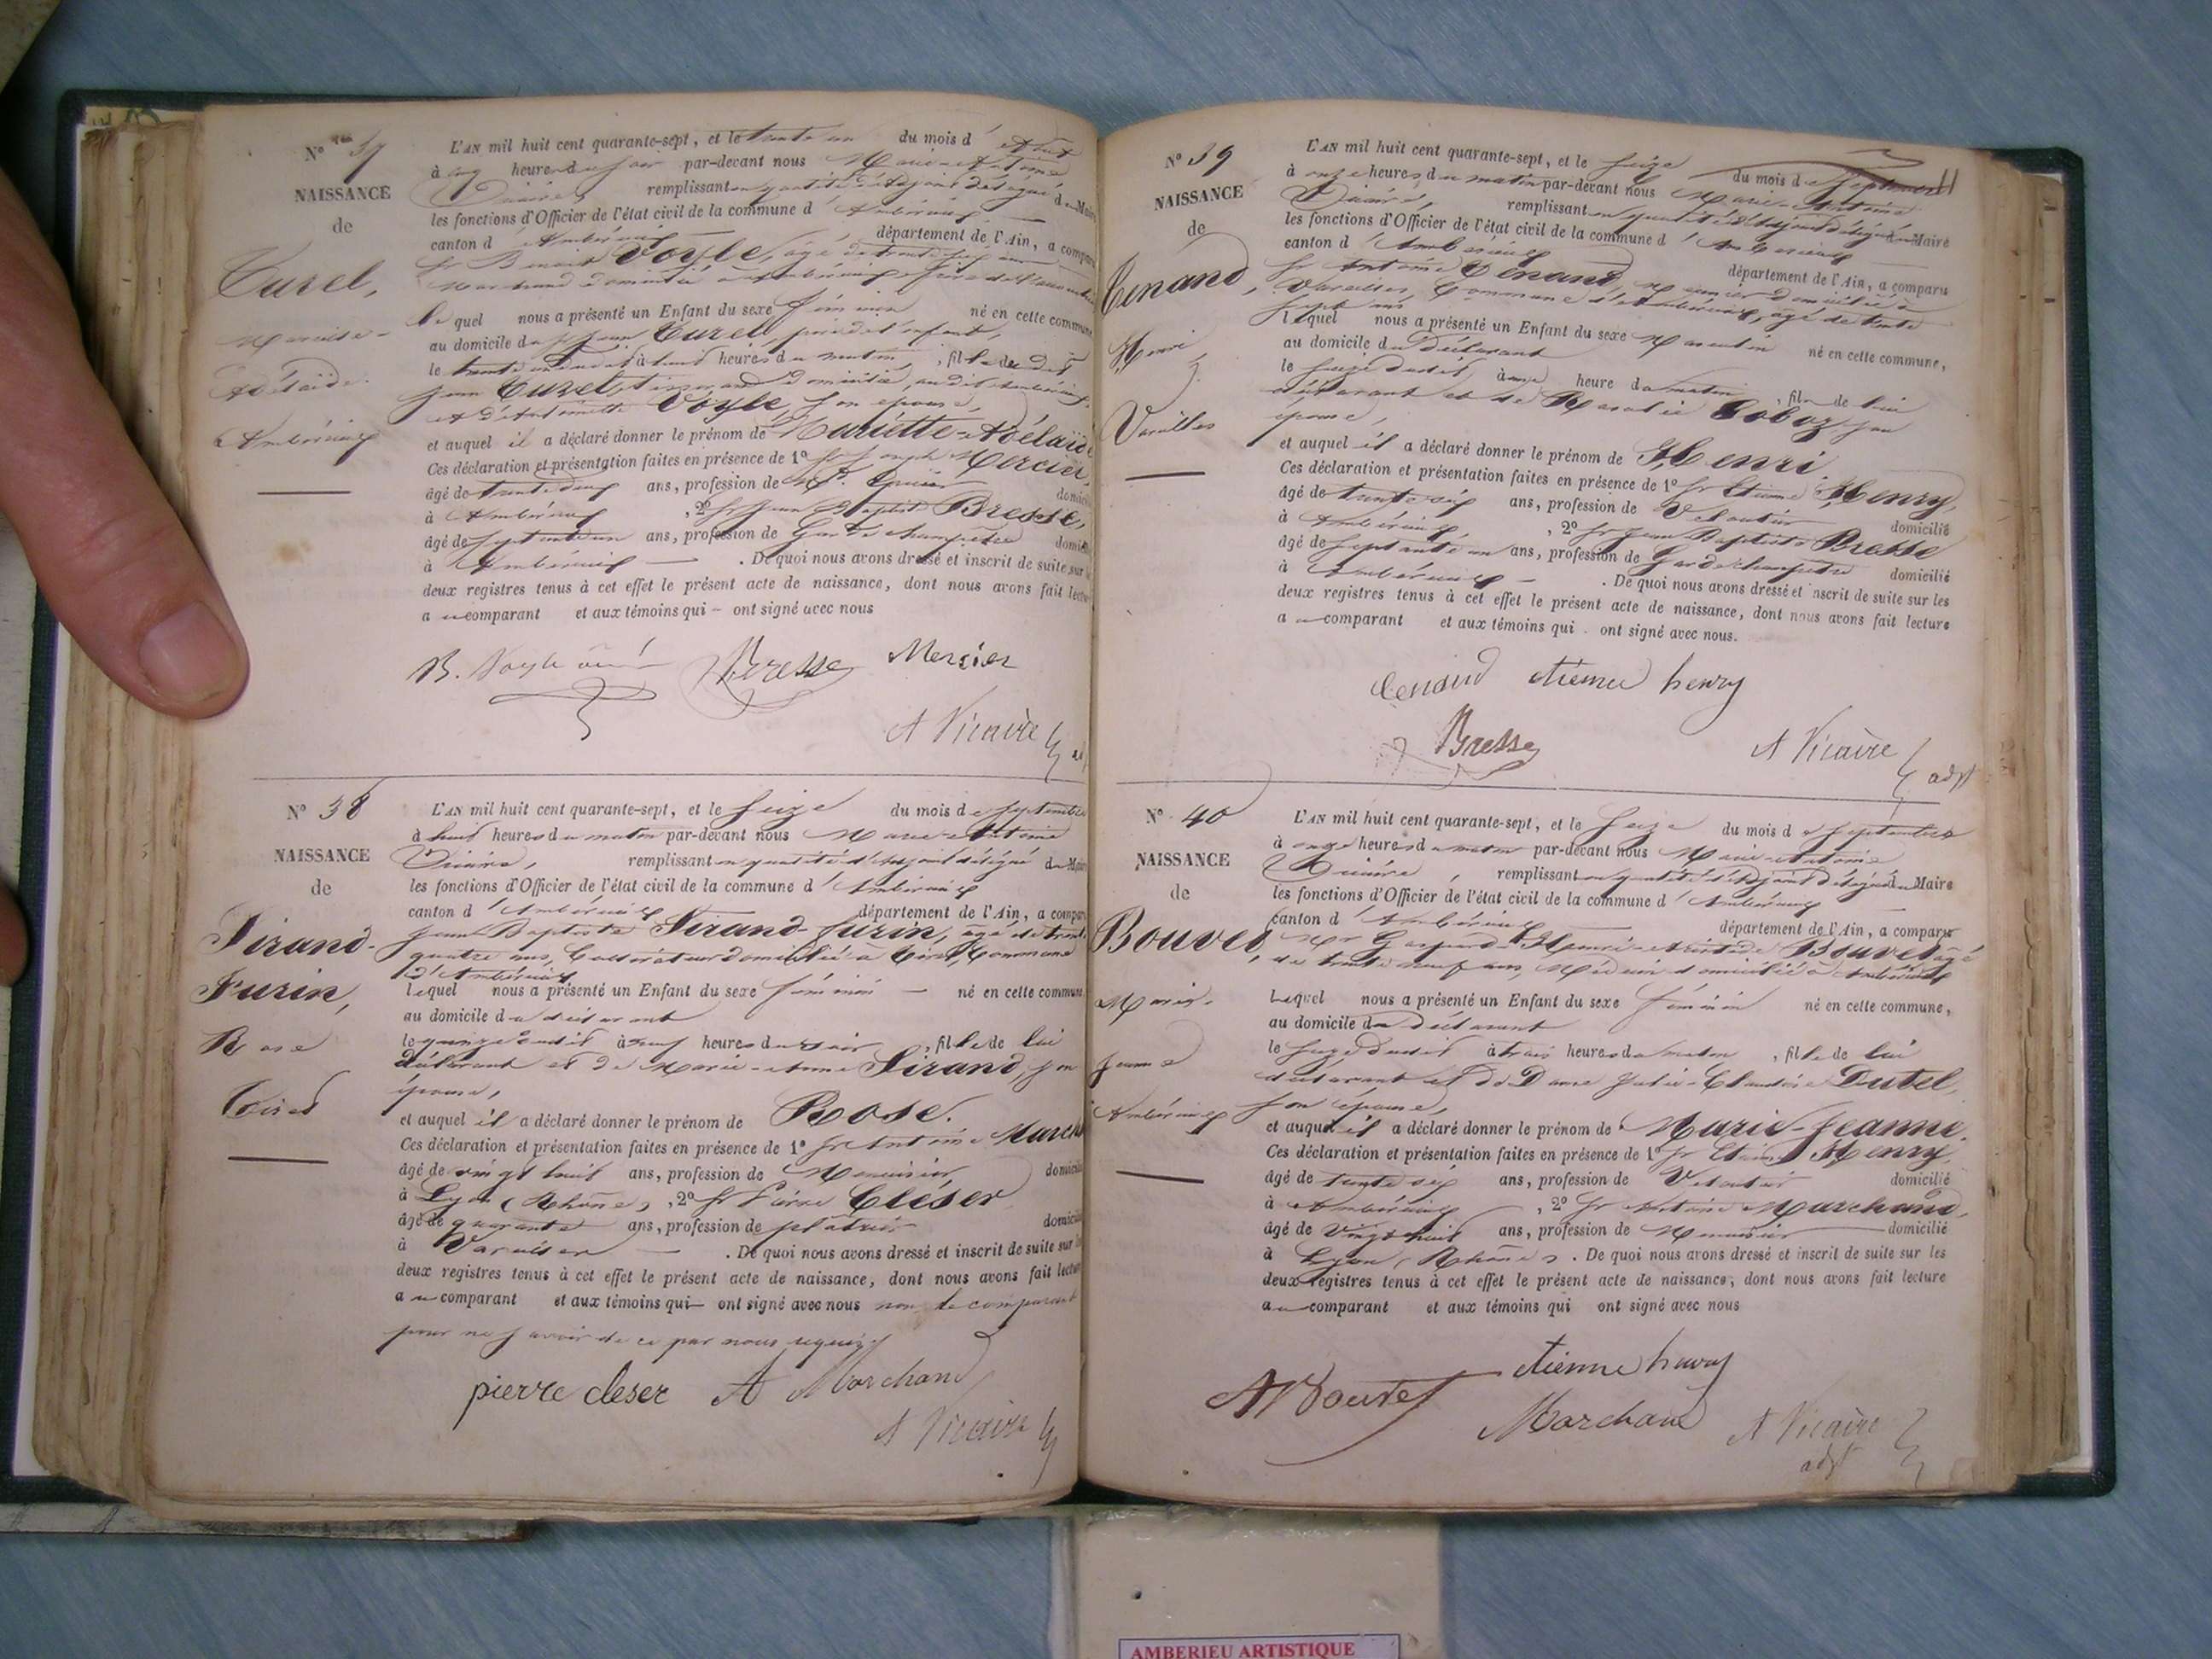 N° 37
NAISSANCE
de
Turel,
Mariette-
Adélaïde.
Ambérieux
L'AN mil huit cent quarante-sept, et le trente un du mois d'Août
à six heures du soir par-devant nous Marie-Antoine
Vicaire, remplissant en qualité d'Adjoint délégué du Maire
les fonctions d'Officier de l'état civil de la commune d'Ambérieux
canton d'Ambérieux département de l'Ain, a comparu
Sr Benoit Voyle, âgé de trente six ans
Marchand domicilié à Ambérieux
lequel nous a présenté un Enfant du sexe féminin né en cette commune
au domicile du Sr Jean Turel, père de l'enfant,
le trente un dudit à huit heures du matin, fille de dit
Jean Turel, tisserand domicilié, audit Ambérieux,
et d'Antoinette Voyle son épouse,
et auquel il a déclaré donner le prénom de Mariette-Adélaïde
Ces déclaration et présentation faites en présence de 1° Sr Joseph Mercier,
âgé de trente deux ans, profession de Md. Epicier domicilié
à Ambérieux, 2° Sr Jean Baptiste Bresse,
âgé de septante un ans, profession de Garde champêtre domicilié
à Ambérieux — . De quoi nous avons dressé et inscrit de suite sur les
deux registres tenus à cet effet le présent acte de naissance, dont nous avons fait lecture
au comparant et aux témoins qui – ont signé avec nous
B. Voyle ainé Bresse Mercier
A Vicaire
N° 38
NAISSANCE
de
Sirand-
Furin,
Rose
Tiret
L'AN mil huit cent quarante-sept, et le seize du mois de septembre
à huit heures du matin par-devant nous Marie-Antoine
Vicaire, remplissant en qualité d'Adjoint délégué du Maire
les fonctions d'Officier de l'état civil de la commune d'Ambérieux
canton d'Ambérieux département de l'Ain, a comparu
Jean Baptiste Sirand-Furin, âgé de trente
quatre ans, Cultivateur domicilié à Tiret, Commune
d'Ambérieux
lequel nous a présenté un Enfant du sexe féminin — né en cette commune
au domicile du déclarant
le quinze dudit à neuf heures du soir, fille de lui
déclarant et de Marie-Anne Sirand, son
épouse,
et auquel il a déclaré donner le prénom de Rose.
Ces déclaration et présentation faites en présence de 1° Sr Antoine Marchand
âgé de vingt huit ans, profession de Menuisier domicilié
à Lyon (Rhône), 2° Sr Pierre Cléser
âgé de quarante ans, profession de plâtrier domicilié
à Vareilles — . De quoi nous avons dressé et inscrit de suite sur les
deux registres tenus à cet effet le présent acte de naissance, dont nous avons fait lecture
au comparant et aux témoins qui – ont signé avec nous non le comparant
pour ne savoir de ce par nous requis
pierre cleser A Marchand
A Vicaire
N° 39
NAISSANCE
de
Tenand,
Henri
Vareilles
L'AN mil huit cent quarante-sept, et le seize du mois de septembre
à onze heures du matin par-devant nous Marie-Antoine
Vicaire, remplissant en qualité d'Adjoint délégué du Maire
les fonctions d'Officier de l'état civil de la commune d'Ambérieux
canton d'Ambérieux département de l'Ain, a comparu
Sr Antoine Tenand, domicilié à
Vareilles, Commune d'Ambérieux, âgé de trente
sept ans
lequel nous a présenté un Enfant du sexe Masculin né en cette commune,
au domicile du Déclarant
le seize dudit à une heure du matin, fils de lui
déclarant et de Rosalie Goboz, son
épouse,
et auquel il a déclaré donner le prénom de Henri
Ces déclaration et présentation faites en présence de 1° Sr Etienne Henry,
âgé de trente six ans, profession de Veloutier domicilié
à Ambérieux, 2° Sr Jean Baptiste Bresse
âgé de septante un ans, profession de Garde champêtre domicilié
à Ambérieux — . De quoi nous avons dressé et inscrit de suite sur les
deux registres tenus à cet effet le présent acte de naissance, dont nous avons fait lecture
au comparant et aux témoins qui ont signé avec nous.
Tenand étienne henry
Bresse A Vicaire
adjt
N° 40
NAISSANCE
de
Bouvet,
Marie-
Jeanne
Ambérieux
L'AN mil huit cent quarante-sept, et le seize du mois de septembre
à onze heures du matin par-devant nous Marie-Antoine
Vicaire, remplissant en qualité d'Adjoint délégué du Maire
les fonctions d'Officier de l'état civil de la commune d'Ambérieux
canton d'Ambérieux département de l'Ain, a comparu
Mr Gaspard-Henri-Aristide Bouvet âgé
de trente neuf ans, Médecin domicilié à Ambérieux
Lequel nous a présenté un Enfant du sexe féminin né en cette commune,
au domicile du Déclarant
le seize dudit à trois heures du matin, fille de lui
déclarant et de Dame Julie-Claudine Dutel,
son épouse,
et auquel il a déclaré donner le prénom de Marie-Jeanne.
Ces déclaration et présentation faites en présence de 1° Sr Etienne Henry,
âgé de trente six ans, profession de Veloutier domicilié
à Ambérieux, 2° Sr Antoine Marchand,
âgé de vingt huit ans, profession de Menuisier domicilié
à Lyon (Rhône). De quoi nous avons dressé et inscrit de suite sur les
deux registres tenus à cet effet le présent acte de naissance, dont nous avons fait lecture
au comparant et aux témoins qui ont signé avec nous
étienne henry
A Bouvet
Marchand A Vicaire
adjt
AMBERIEU ARTISTIQUE